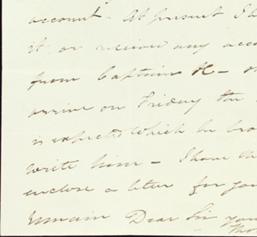 account. At present I d
it or receive any acco
from Captain H— o
arrive on Friday the
is expected which he bro
write him — I have th
enclose a letter for you
remain Dear Sir your
Tho